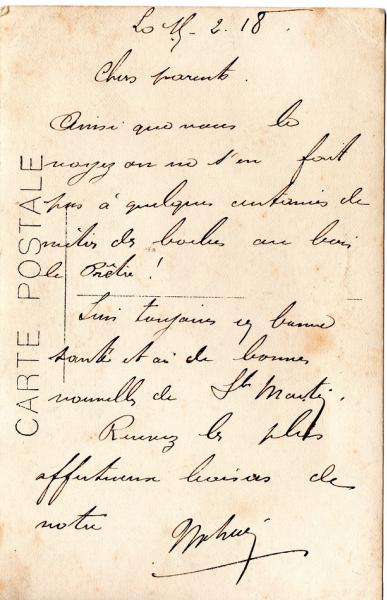 Le 15-2.18.
Chers parents.
Ainsi que vous le
voyez on ne s'en fait
pas à quelques centaines de
mètres des boches au bois
le Prêtre !
Suis toujours en bonne
santé et ai de bonnes
nouvelles de St Martin.
Recevez les plus
affectueux baisers de
notre
CARTE POSTALE